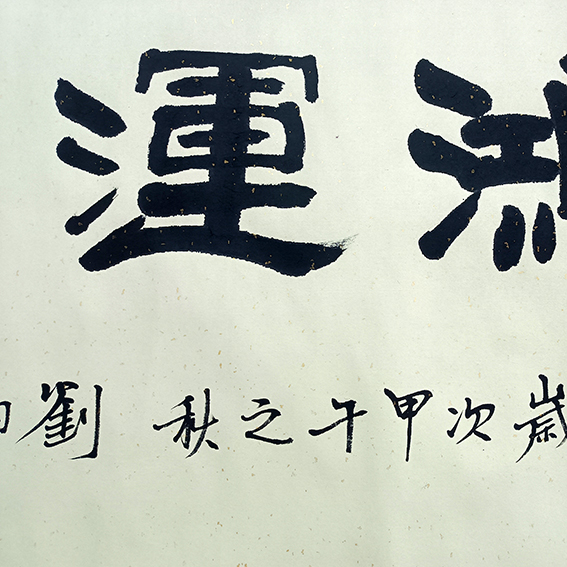 鴻運
歲次甲午之秋 劉